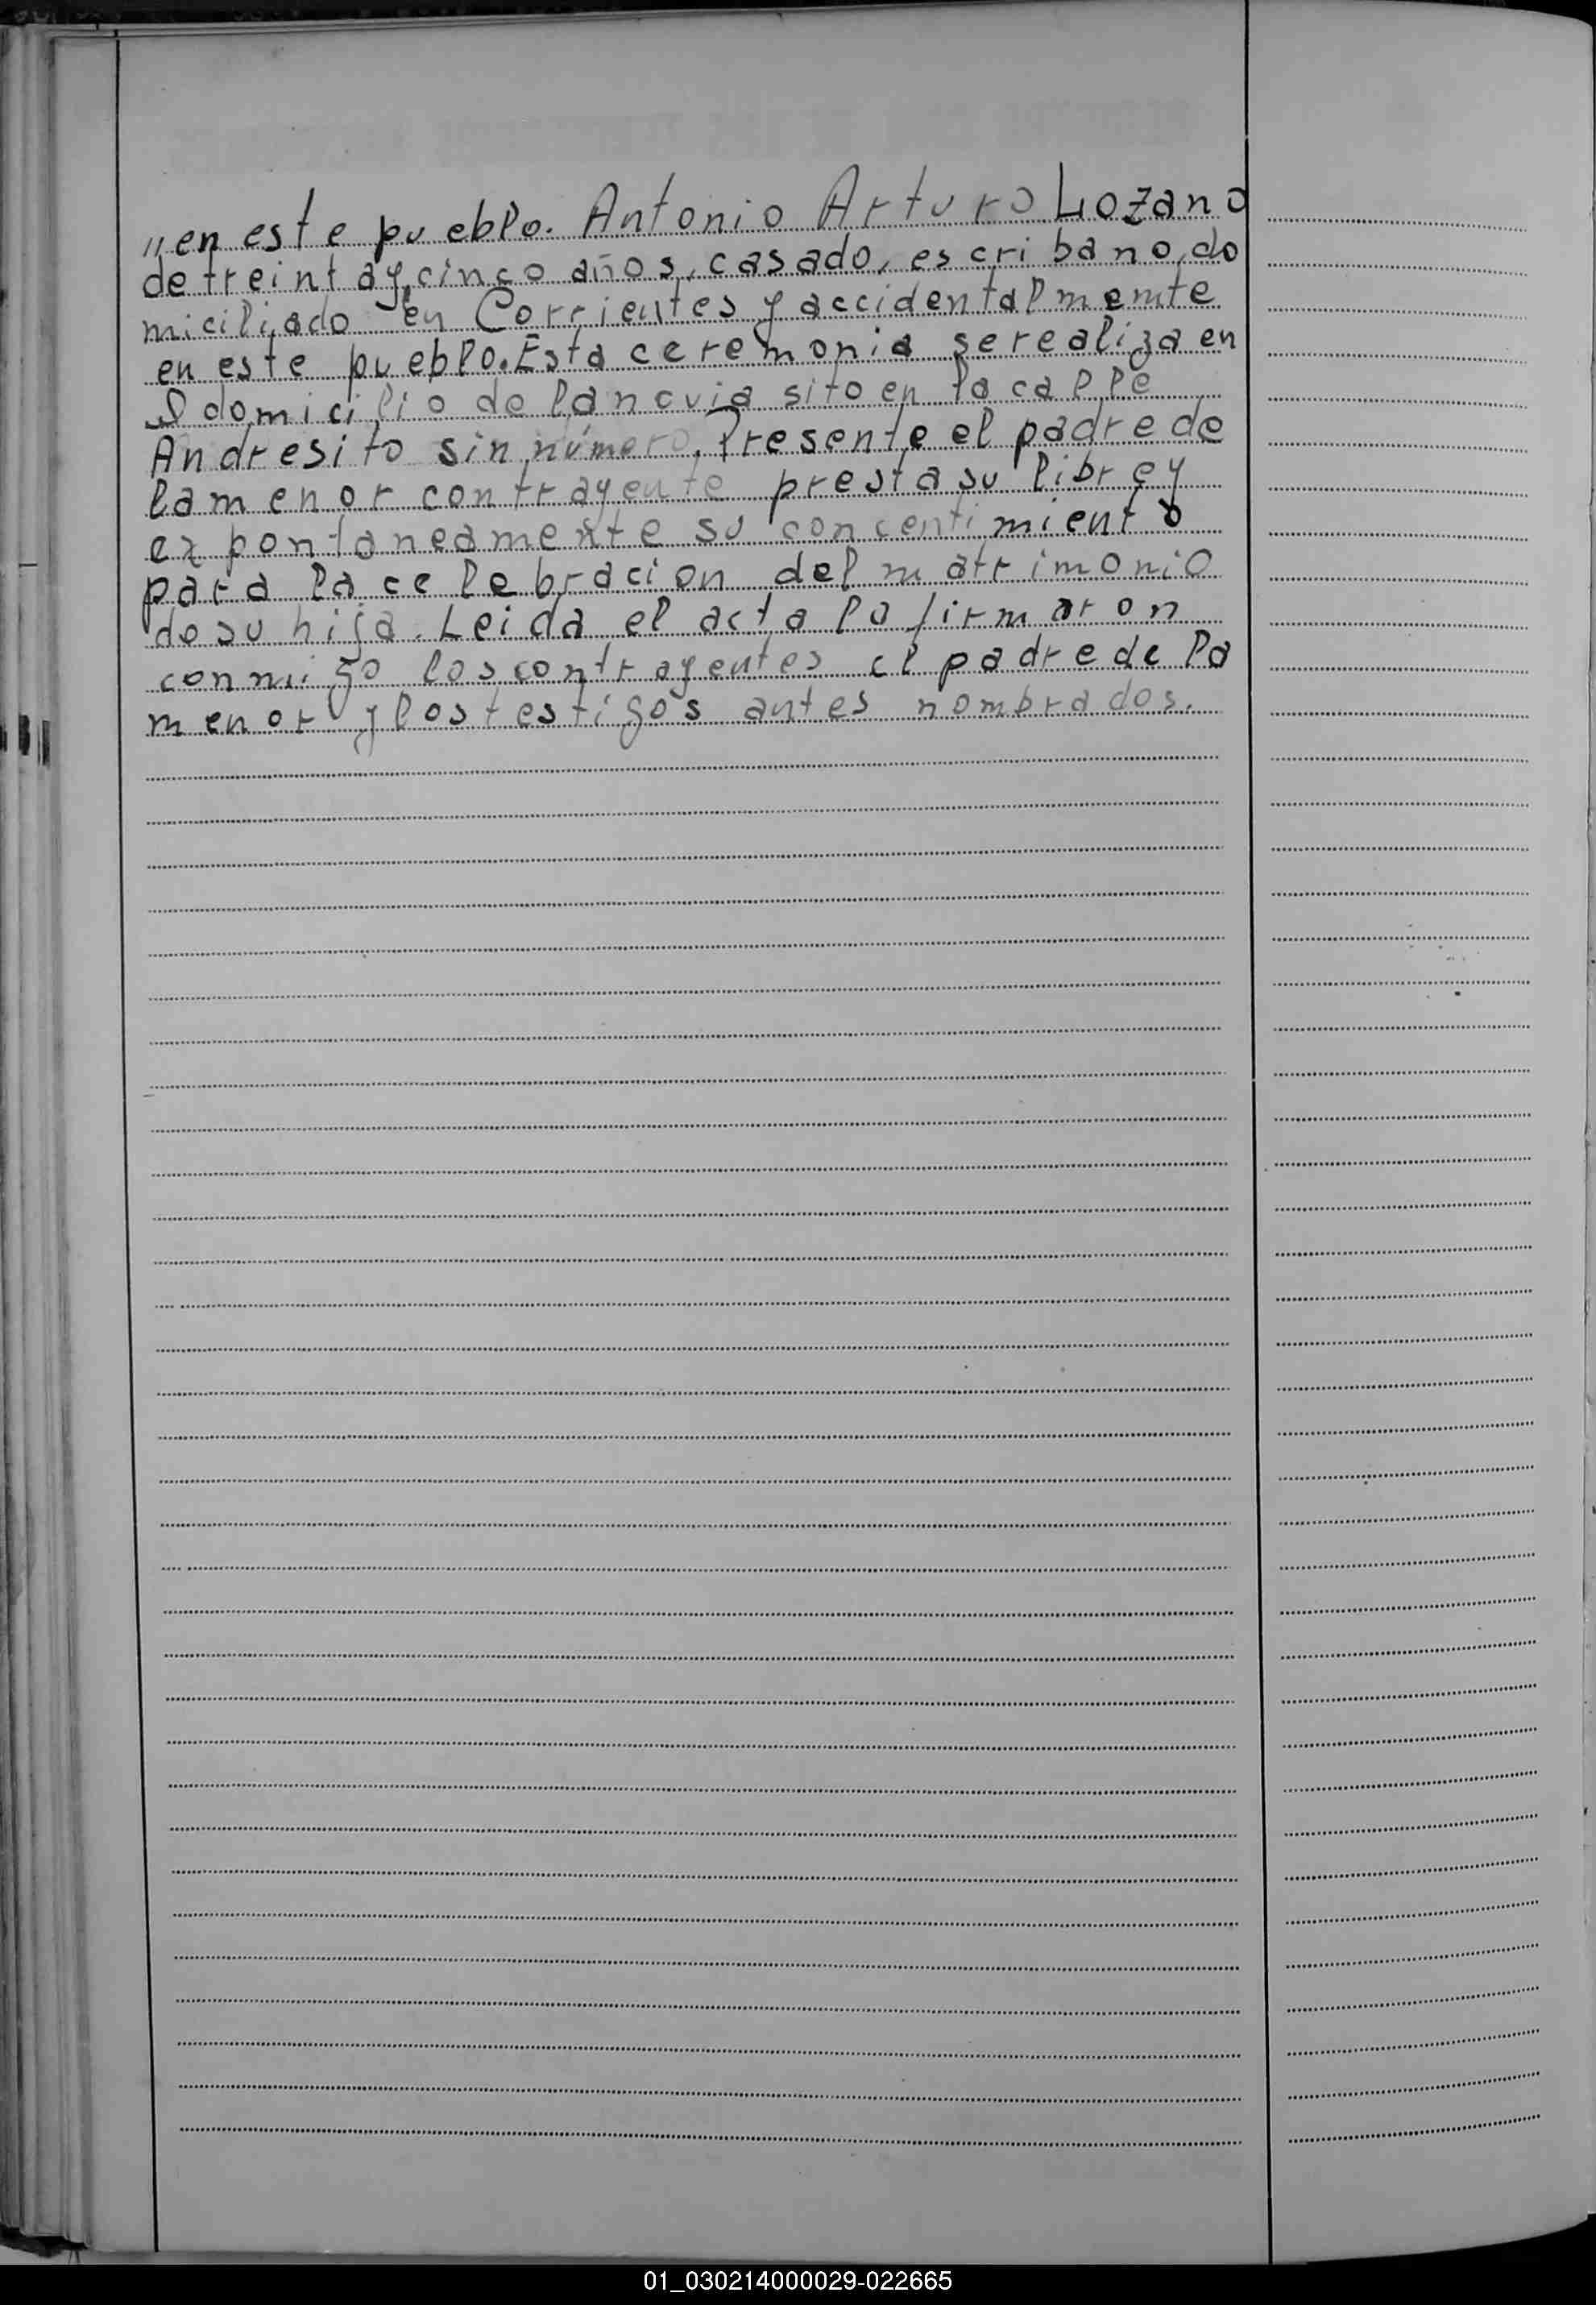 " en este pueblo. Antonio Arturo Lozano
de treinta y cinco años, casado, escribano, do
miciliado en Corrientes y accidentalmente
en este pueblo. Esta ceremonia se realiza en
el domicilio de la novia sito en la calle
Andresito sin número. Presente el padre de
la menor contrayente presta su libre y
expontaneamente su concentimiento
para la celebracion del matrimonio
de su hija. Leida el acta la firmaron
conmigo los contrayentes el padre de la
menor y los testigos antes nombrados.
01_030214000029-022665